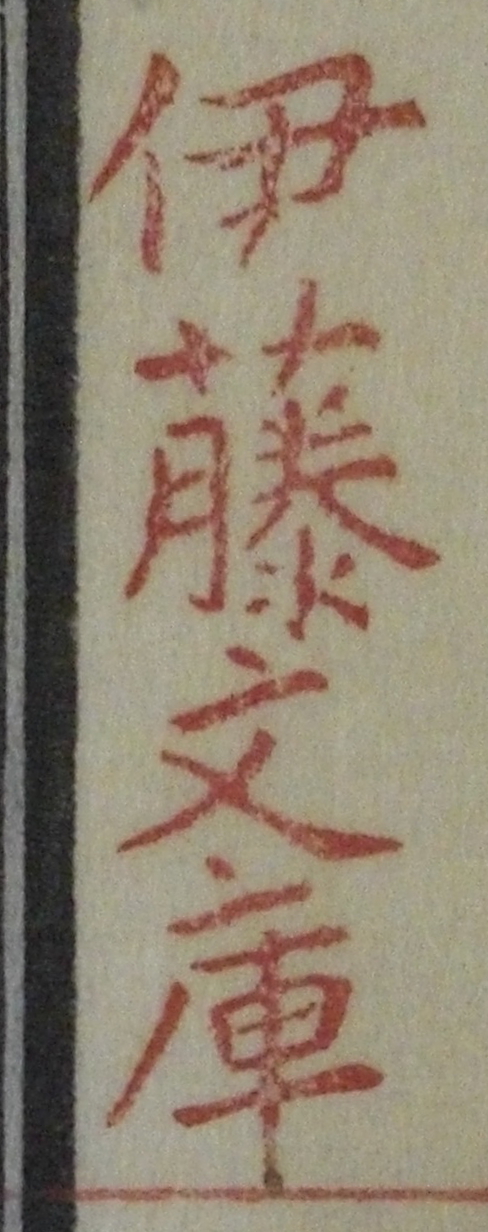 伊藤文庫